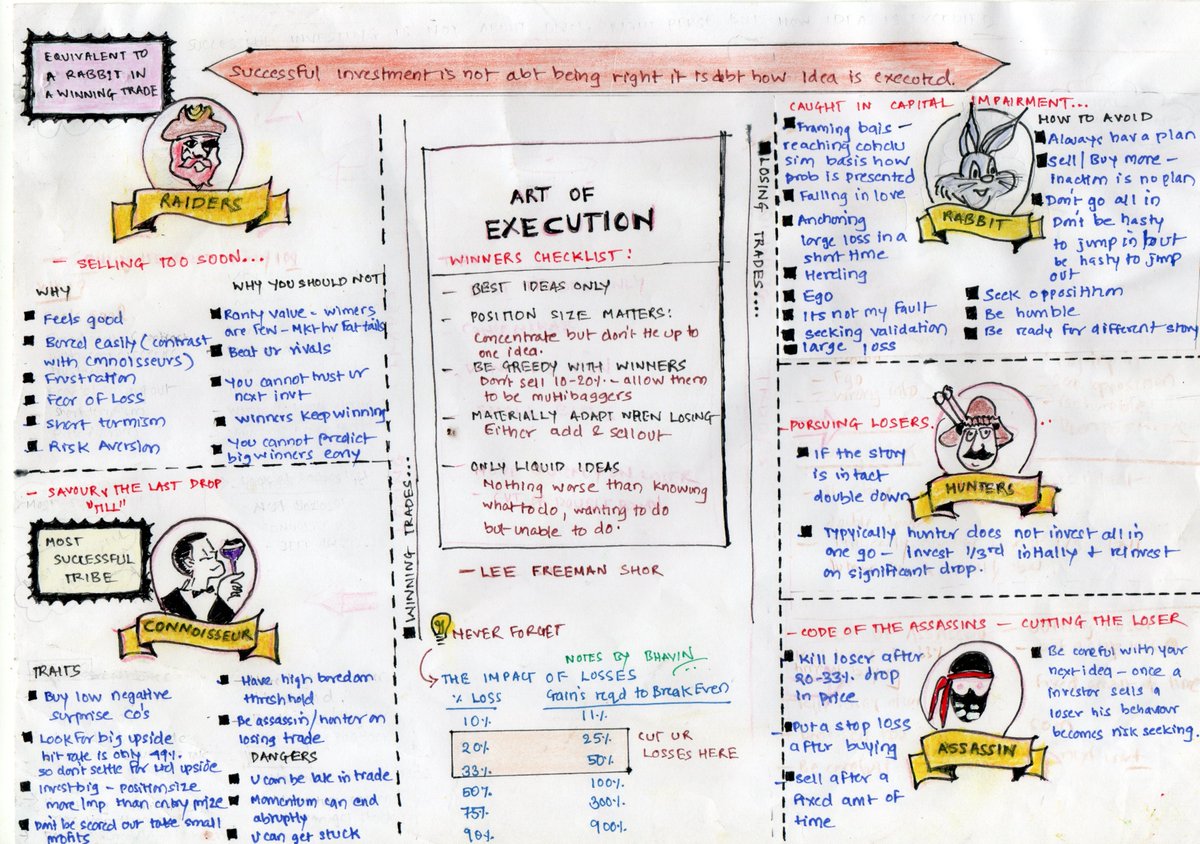 EQUIVALENT TO
A RABBIT IN
A WINNING TRADE
Successful investment is not abt being right it is abt how idea is executed.
RAIDERS
- SELLING TOO SOON...
WHY
Feels good
Bored easily (contrast
with connoisseurs)
Frustration
Fear of Loss
Short termism
Risk Aversion
WHY YOU SHOULD NOT
Rarity value - winners
are few - Mkt hv Fat tails
Beat ur rivals
You cannot trust ur
next invt
Winners keep winning
You cannot predict
big winners
- SAVOUR THE LAST DROP
"TILL"
MOST
SUCCESSFUL
TRIBE
CONNOISSEUR
TRAITS
Buy low negative
surprise co's
Look for big upside
hit rate is only 49%
so don't settle for upside
Invest big - position size
more Imp than entry prize
Don't be scared out take small
profits
Have high boredom
threshhold
Be assassin/hunter on
losing trade
DANGERS
U can be late in trade
Momentum can end
abruptly
U can get stuck
WINNING TRADES...
ART OF
EXECUTION
WINNERS CHECKLIST:
- BEST IDEAS ONLY
- POSITION SIZE MATTERS:
Concentrate but don't tie up to
one idea.
- BE GREEDY WITH WINNERS
Don't sell 10-20% - allow them
to be multibaggers
- MATERIALLY ADAPT WHEN LOSING
Either add & sellout
- ONLY LIQUID IDEAS
Nothing worse than knowing
what to do, wanting to do
but unable to do.
- LEE FREEMAN SHOR
NEVER FORGET
NOTES BY BHAVIN
THE IMPACT OF LOSSES
% LOSS Gain's reqd to Break Even
10% 11%
20% 25%
33% 50%
50% 100%
75% 300%
90% 900%
CUT UR
LOSSES HERE
LOSING TRADES...
CAUGHT IN CAPITAL IMPAIRMENT...
Framing bais -
reaching conclu
sion basis how
prob is presented
Falling in love
Anchoring
large loss in a
short time
Herding
Ego
Its not my fault
seeking validation
large loss
RABBIT
HOW TO AVOID
Always hav a plan
Sell/Buy more -
inaction is no plan
Don't go all in
Don't be hasty
to jump in but
be hasty to jump
out
Seek opposition
Be humble
Be ready for different story
PURSUING LOSERS...
HUNTERS
If the story
is intact
double down
Typycally hunter does not invest all in
one go - invest 1/3rd initially & reinvest
on significant drop.
- CODE OF THE ASSASSINS - CUTTING THE LOSER
Kill loser after
20-33% drop
in price
Put a stop loss
after buying
Sell after a
fixed amt of
time
ASSASSIN
Be careful with your
next idea - once a
investor sells a
loser his behaviour
becomes risk seeking.